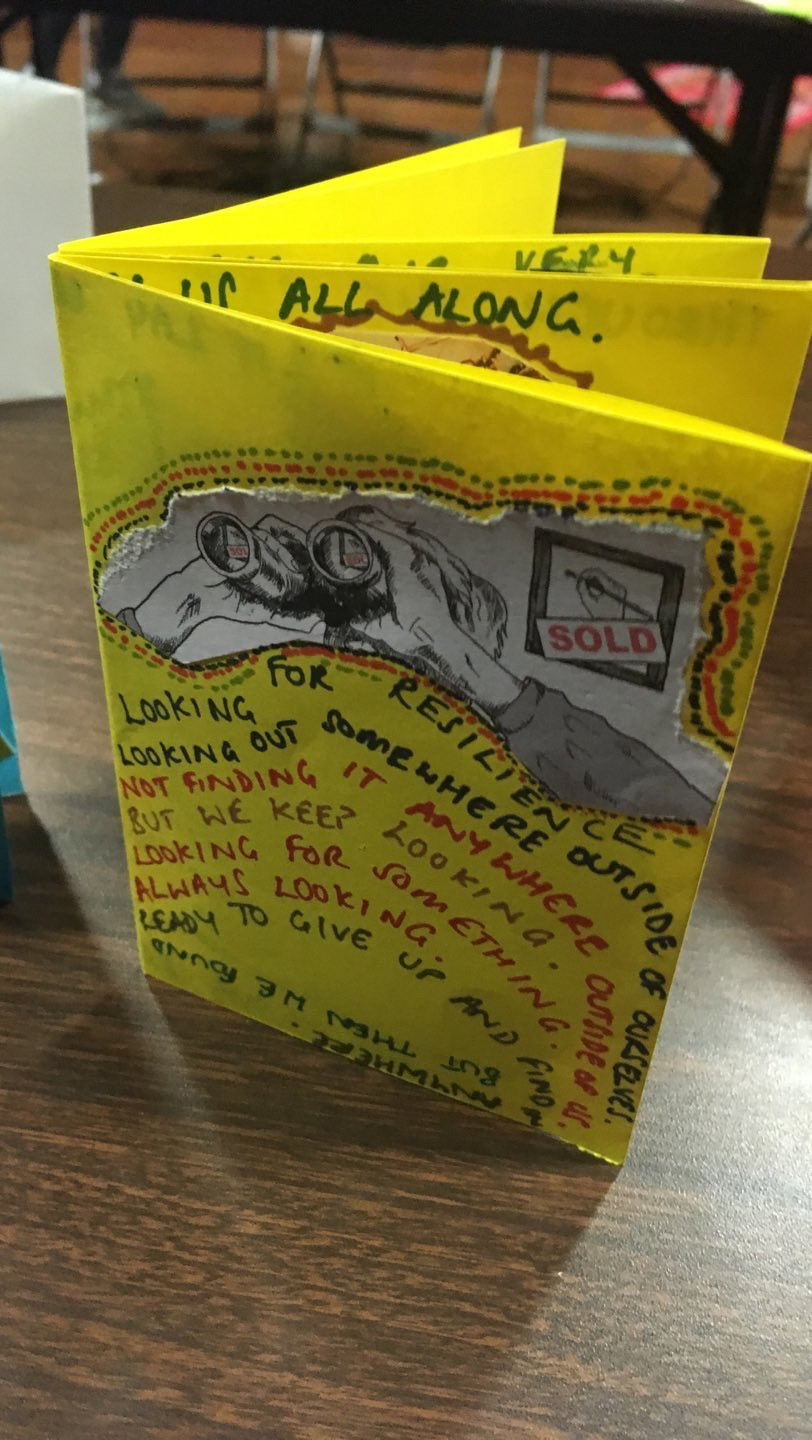 VERY
US ALL ALONG.
SOLD
LOOKING FOR RESILIENCE
LOOKING OUT SOMEWHERE OUTSIDE OF OURSELVES.
NOT FINDING IT ANYWHERE OUTSIDE OF US.
BUT WE KEEP LOOKING.
LOOKING FOR SOMETHING.
ALWAYS LOOKING.
READY TO GIVE UP AND
ANYWHERE.
BUT THEN WE FOUND